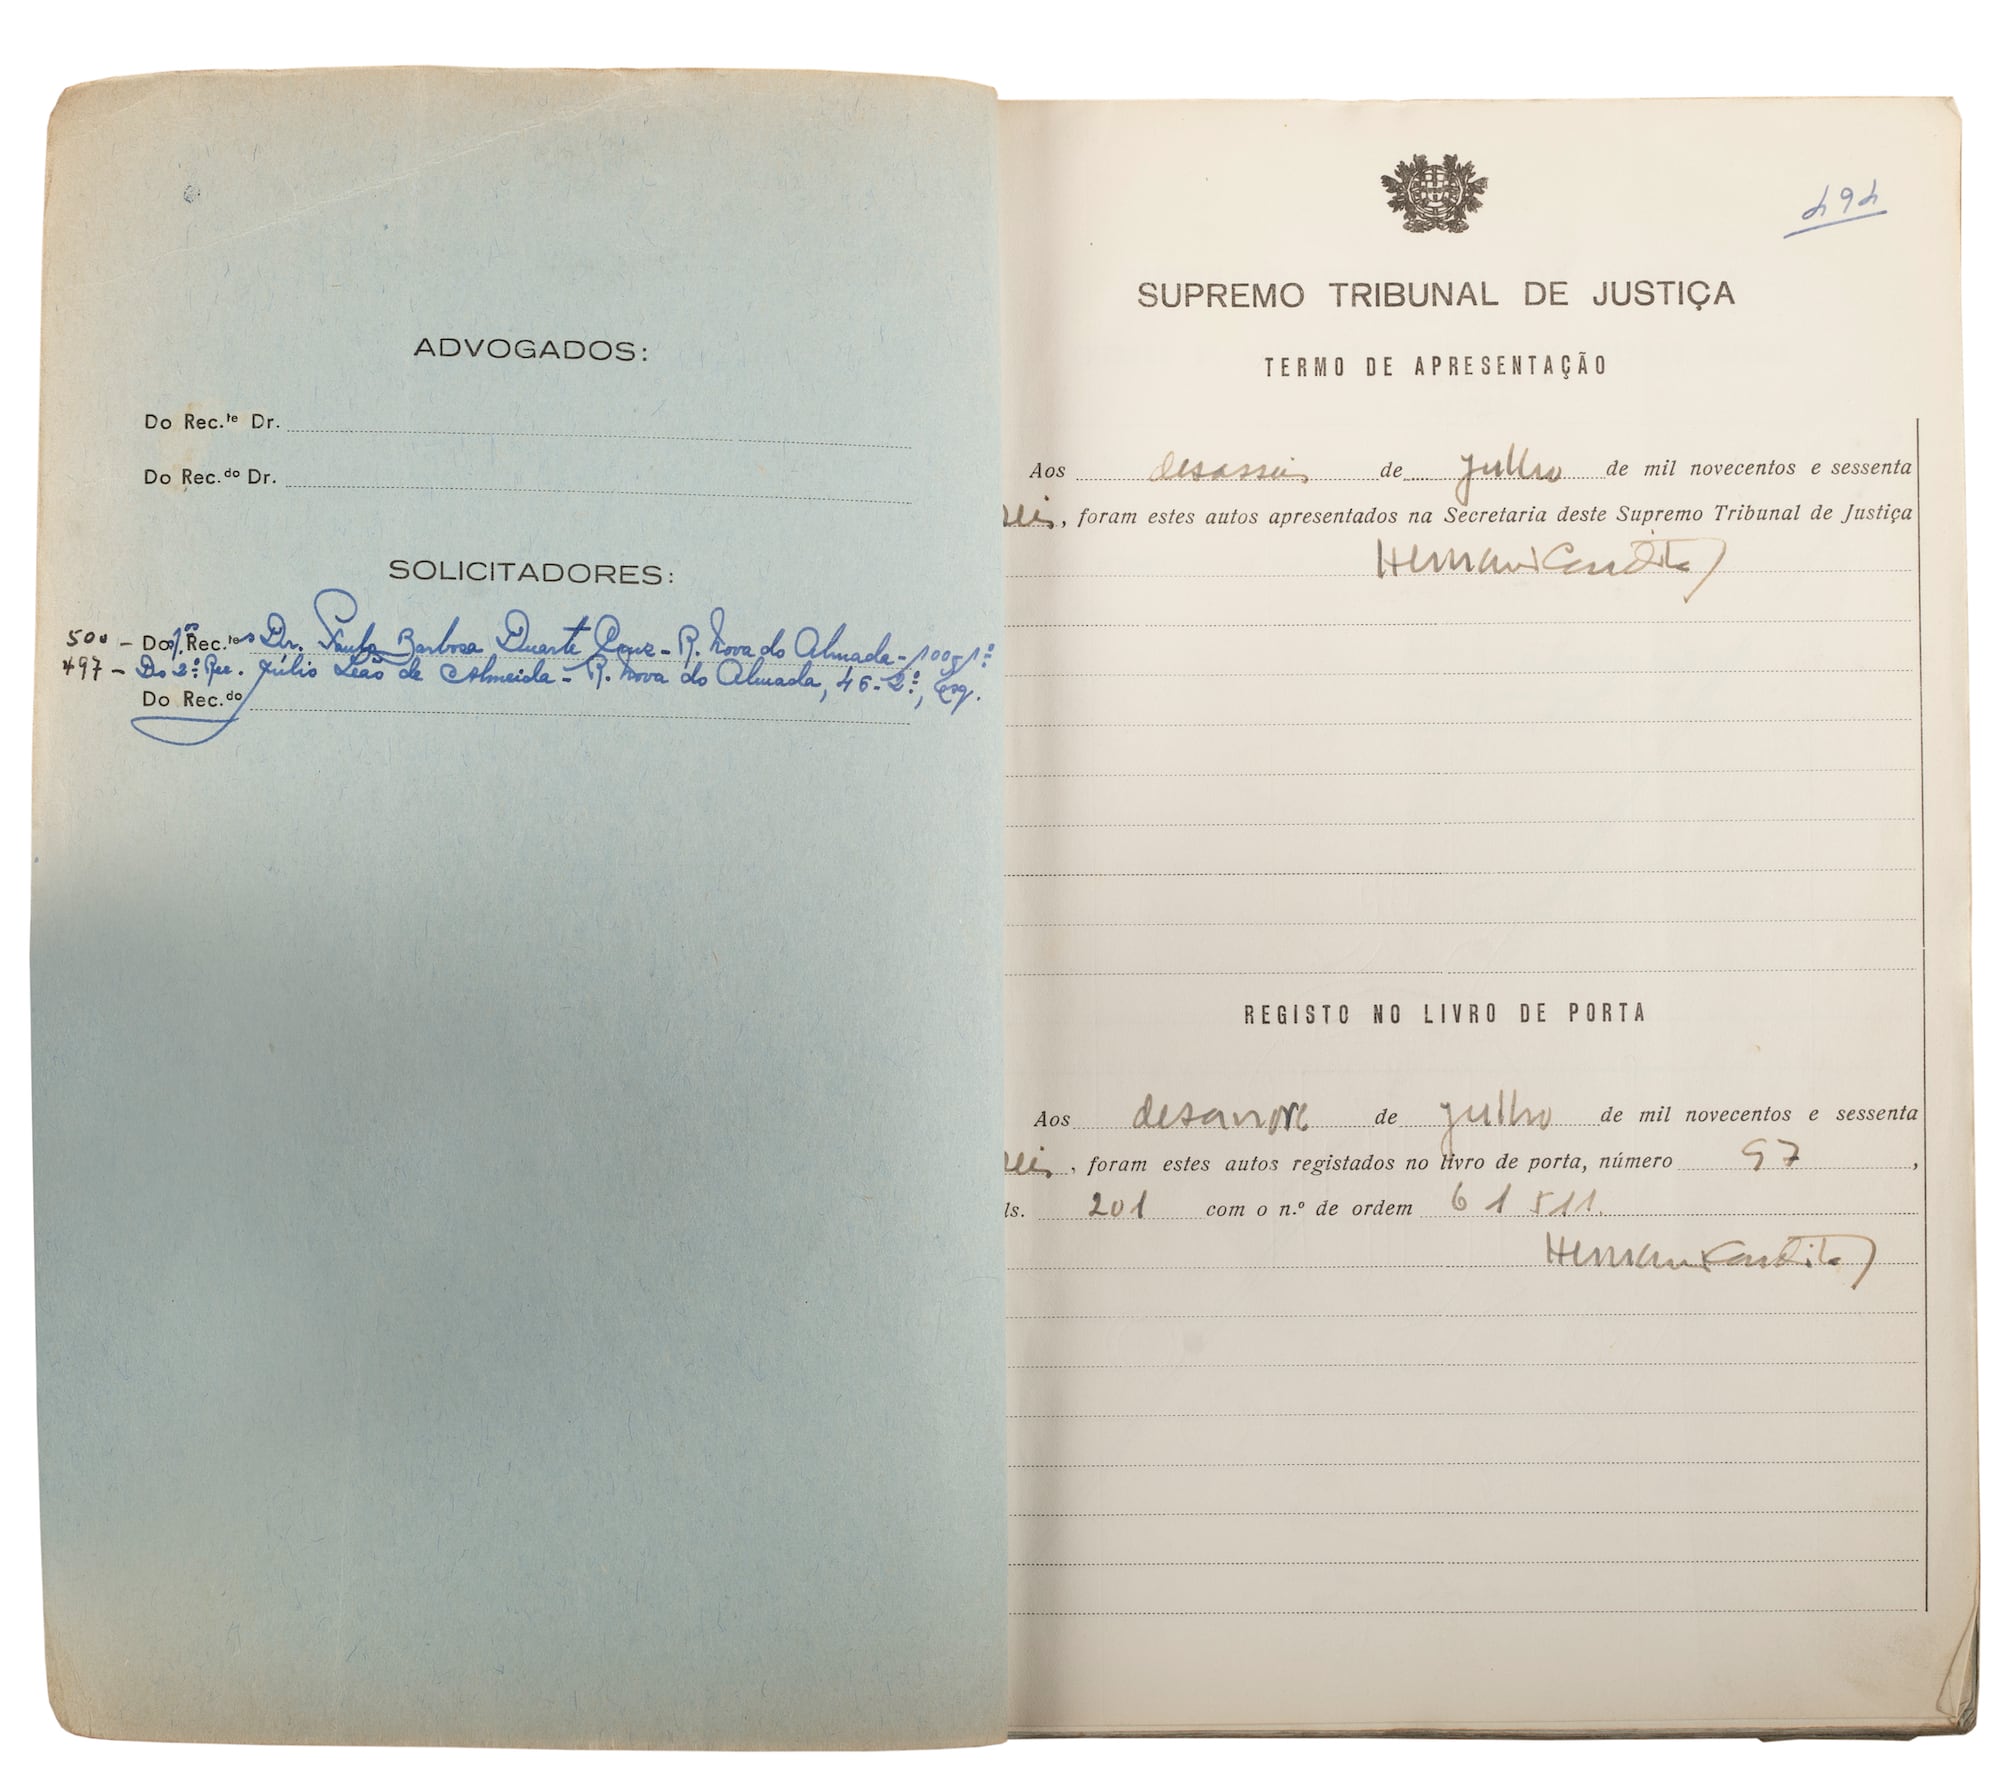 ADVOGADOS:
Do Rec.te Dr.
Do Rec.do Dr.
SOLICITADORES:
500 - Dos 1.os Rec.tes Dr. Paulo Barbosa Duarte Cruz - R. Nova do Almada - 100, 1º
497 - Do 2.º Rec. Júlio Leão de Almeida - R. Nova do Almada, 46-2.º, Esq.
Do Rec.do
494
SUPREMO TRIBUNAL DE JUSTIÇA
TERMO DE APRESENTAÇÃO
Aos desasseis de julho de mil novecentos e sessenta
seis, foram estes autos apresentados na Secretaria deste Supremo Tribunal de Justiça
REGISTO NO LIVRO DE PORTA
Aos desanove de julho de mil novecentos e sessenta
seis, foram estes autos registados no livro de porta, número 97,
ls. 201 com o n.º de ordem 61511.